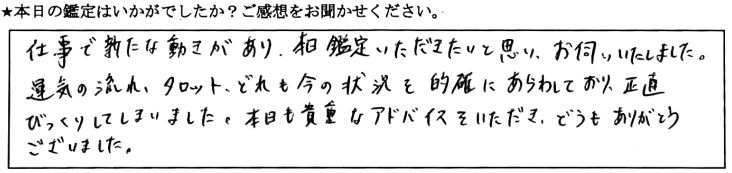 ★本日の鑑定はいかがでしたか？ご感想をお聞かせください。
仕事で新たな動きがあり、本日鑑定いただきたいと思い、お伺いいたしました。
運気の流れ、タロット、どれも今の状況を的確にあらわしており、正直
びっくりしてしまいました。本日も貴重なアドバイスをいただき、どうもありがとう
ございました。